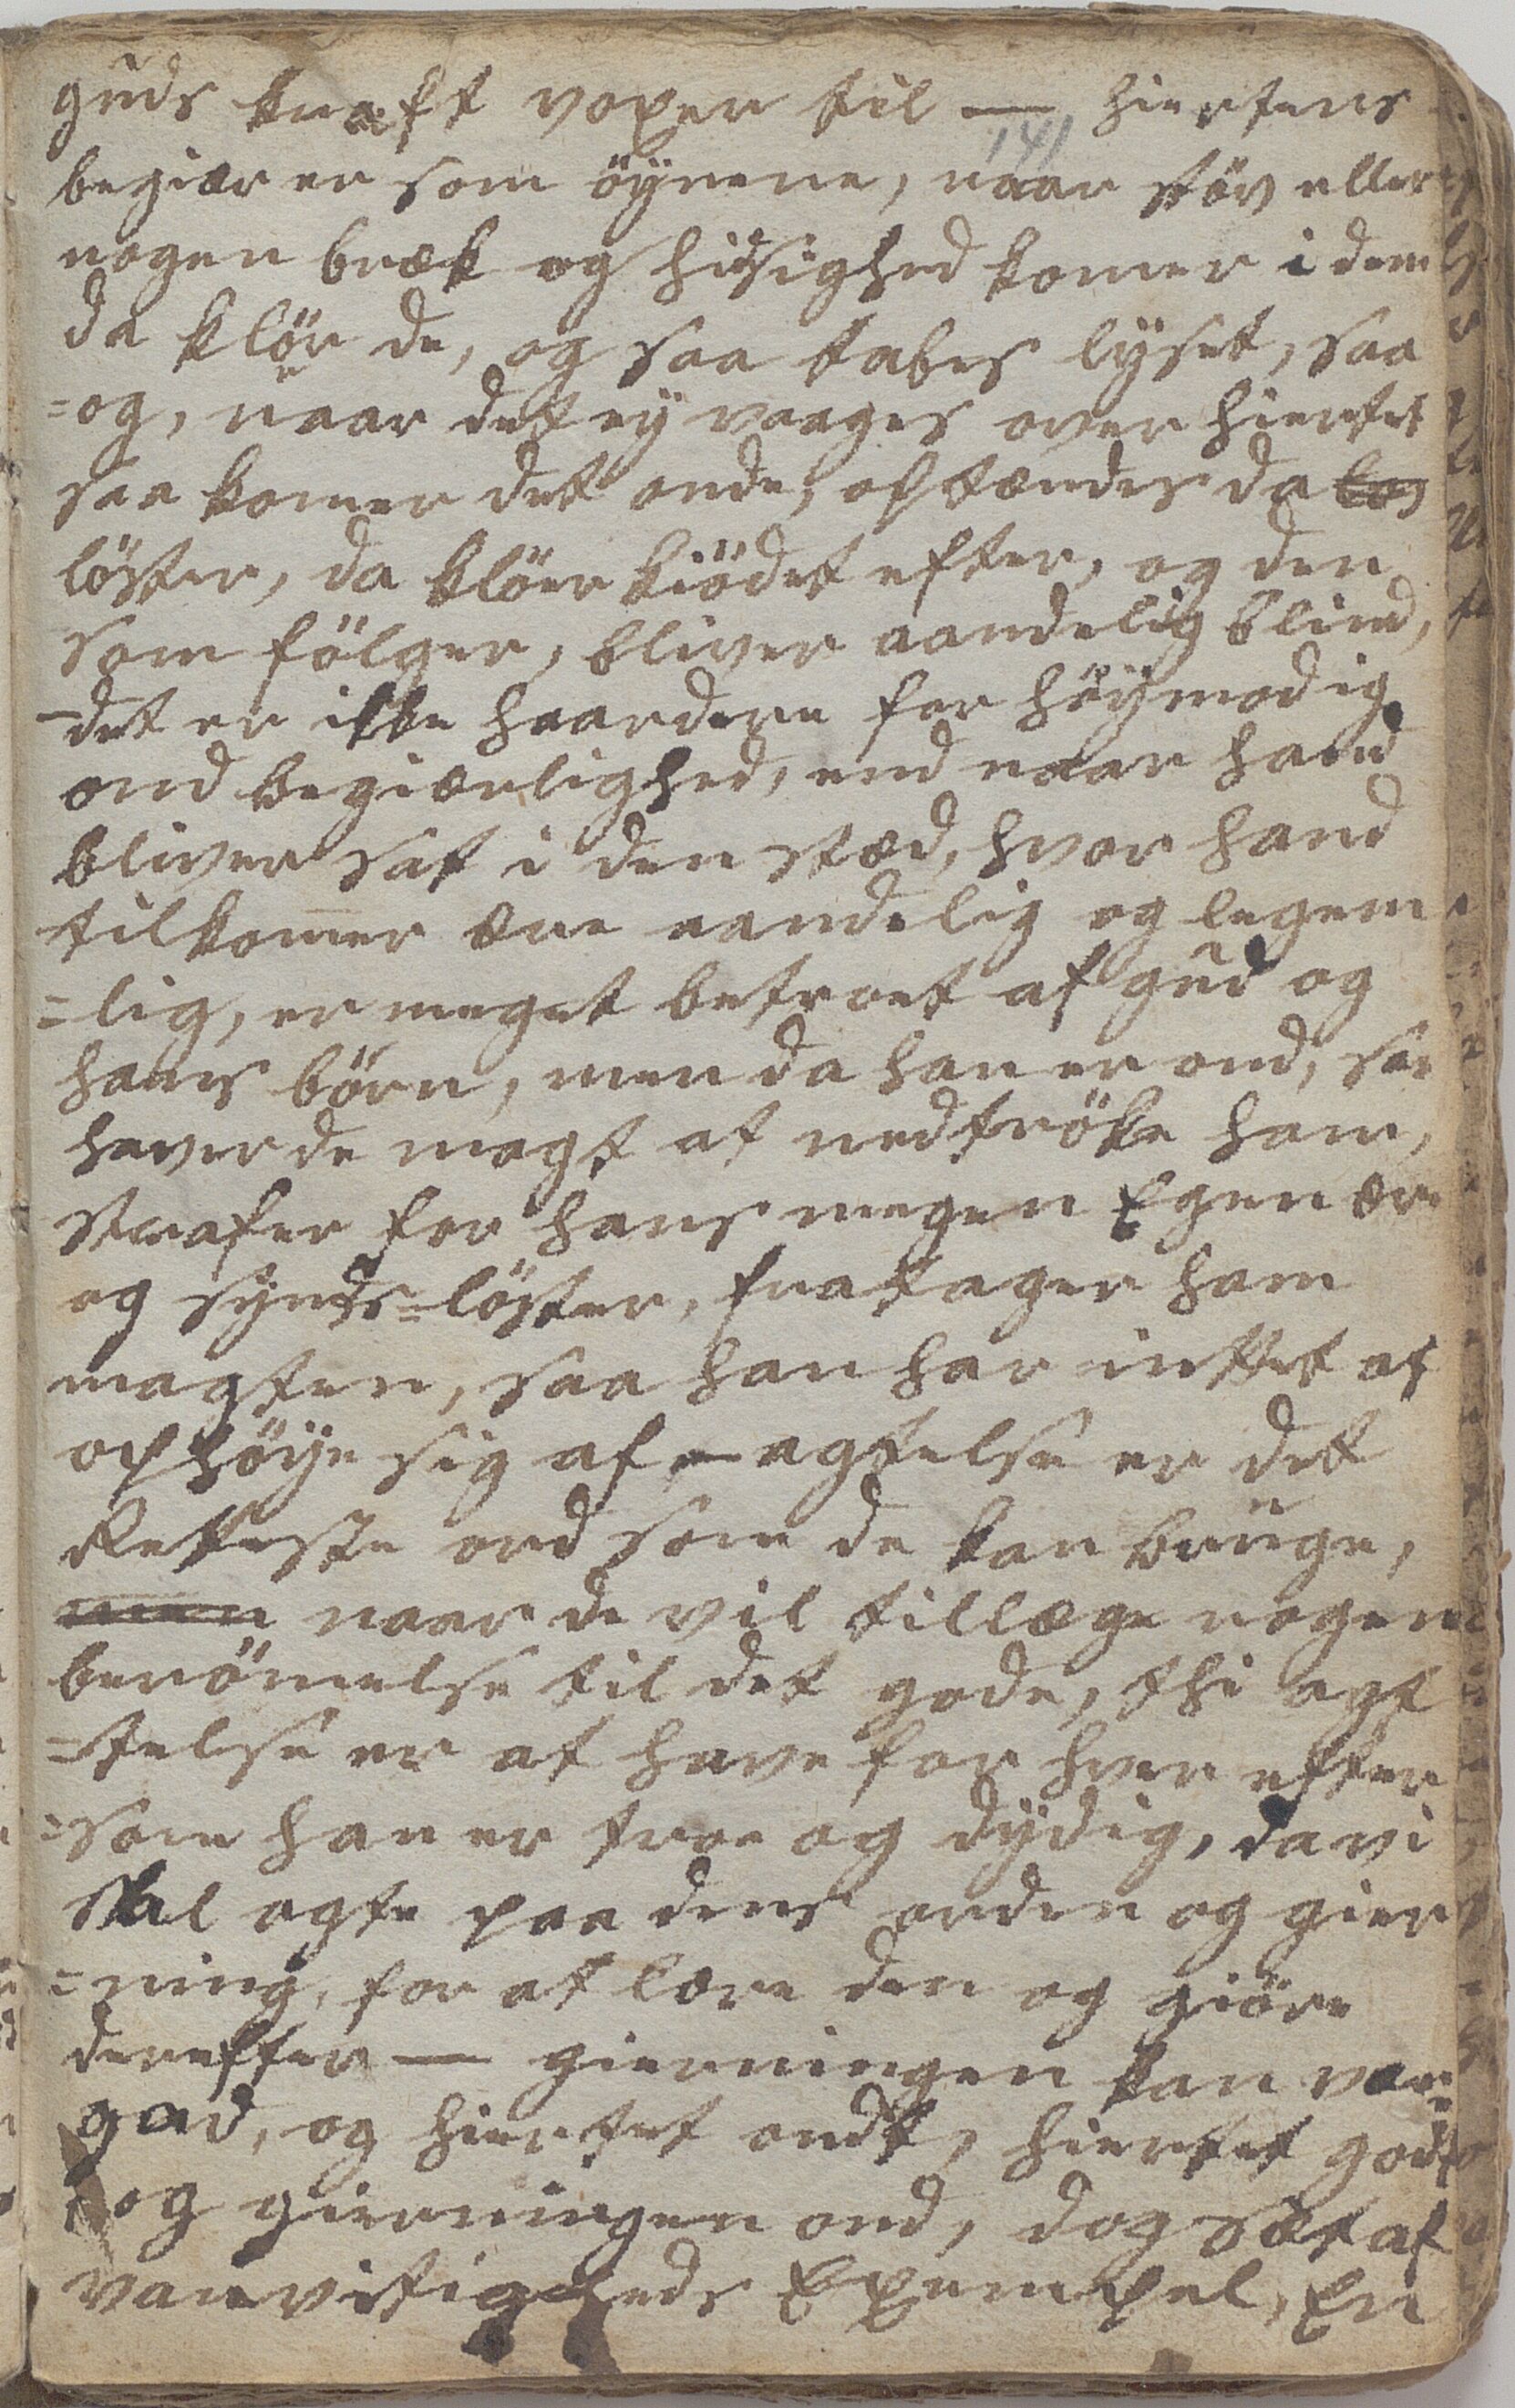 guds kraft voxer til — hiertens
141
begiær er som öÿnene, naar stöv eller
nogen bræk og hidsighed komer i dem
da klör de, og saa tabes lÿset, saa
=og, naar det eÿ vaages over hiertet
saa komer det onde, optændes da
löster, da klöer kiödet efter, og den
som fölger, bliver aandelig blind,
– det er ikke haardere for höÿmodig
ond begiærlighed, end naar hand
bliver sat i den stæd, hvor hand
tilkomer ære aandelig og legem
=lig, er meget betroet af gud og
hans börn, men da han er ond, saa
haver de magt at nedtröke ham,
straffer for hans megen Egen ære
og synds=löster, fratager ham
magten, saa han har inttet at
ophöÿe sig af – agtelse er det
Retteste ord som de kan bruge,
men naar de vil tillæge nogen
berömelse til det gode, thi agt
=telse er at have for hver efter
=som han er troe og dÿdig, da vi
skal agte paa dens orden og gier
=ning, for at lære den og giöre
derefter — gierningen kan være
god, og hiertet ondt, hiertet godt
og gierningen ond, dog sat af
vanvittigheds Exempel, En